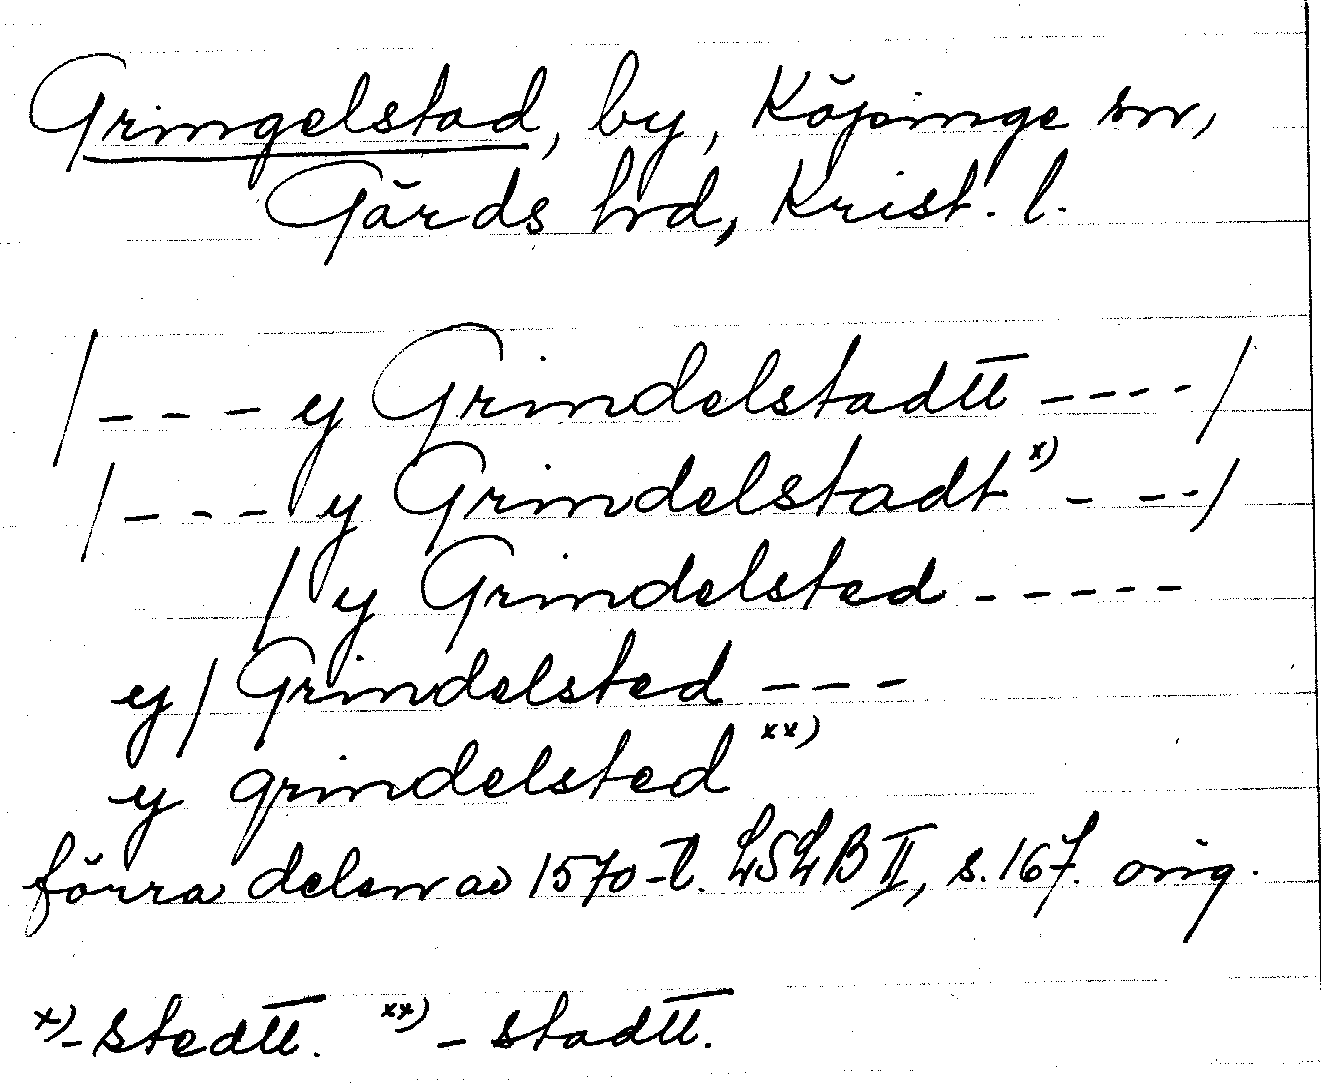 Gringelstad, by, Köpinge sn,
Gärds hd, Krist. l.
/--- y Grindelstadtt ----/
/--- y Grindelstadt x) - --/
/ y Grindelsted -----
y / Grindelsted ---
y grindelsted xx)
förra delen av 1570-t. LSLB II, s. 167. orig.
x) -stedtt. xx) -stadtt.